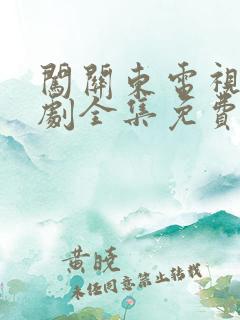 闖關東電視
劇全集免費
黃曉
未經同意禁止轉載